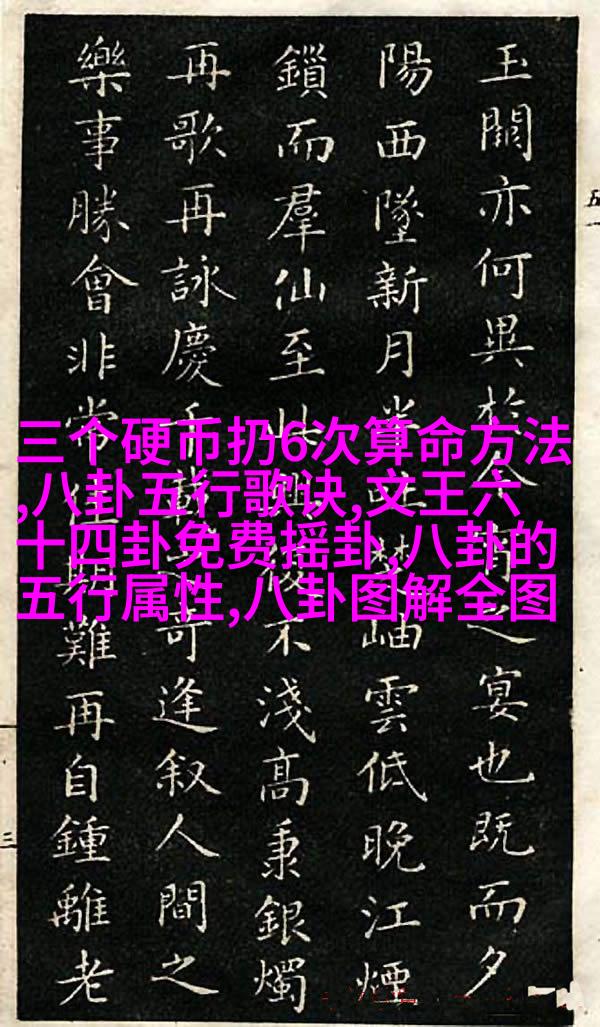 三个硬币扔6次算命方法
,八卦五行歌诀,文王六
十四卦免费摇卦,八卦的
五行属性,八卦图解全图
玉闕亦何異於今宵之宴也既而夕
陽西墜新月楚岫雲低晚江煙
鎖而羣仙至此興復不淺高秉銀燭
再歌再詠慶千載之奇逢叙人間之
樂事勝會非常佳期難再自鍾離老
三